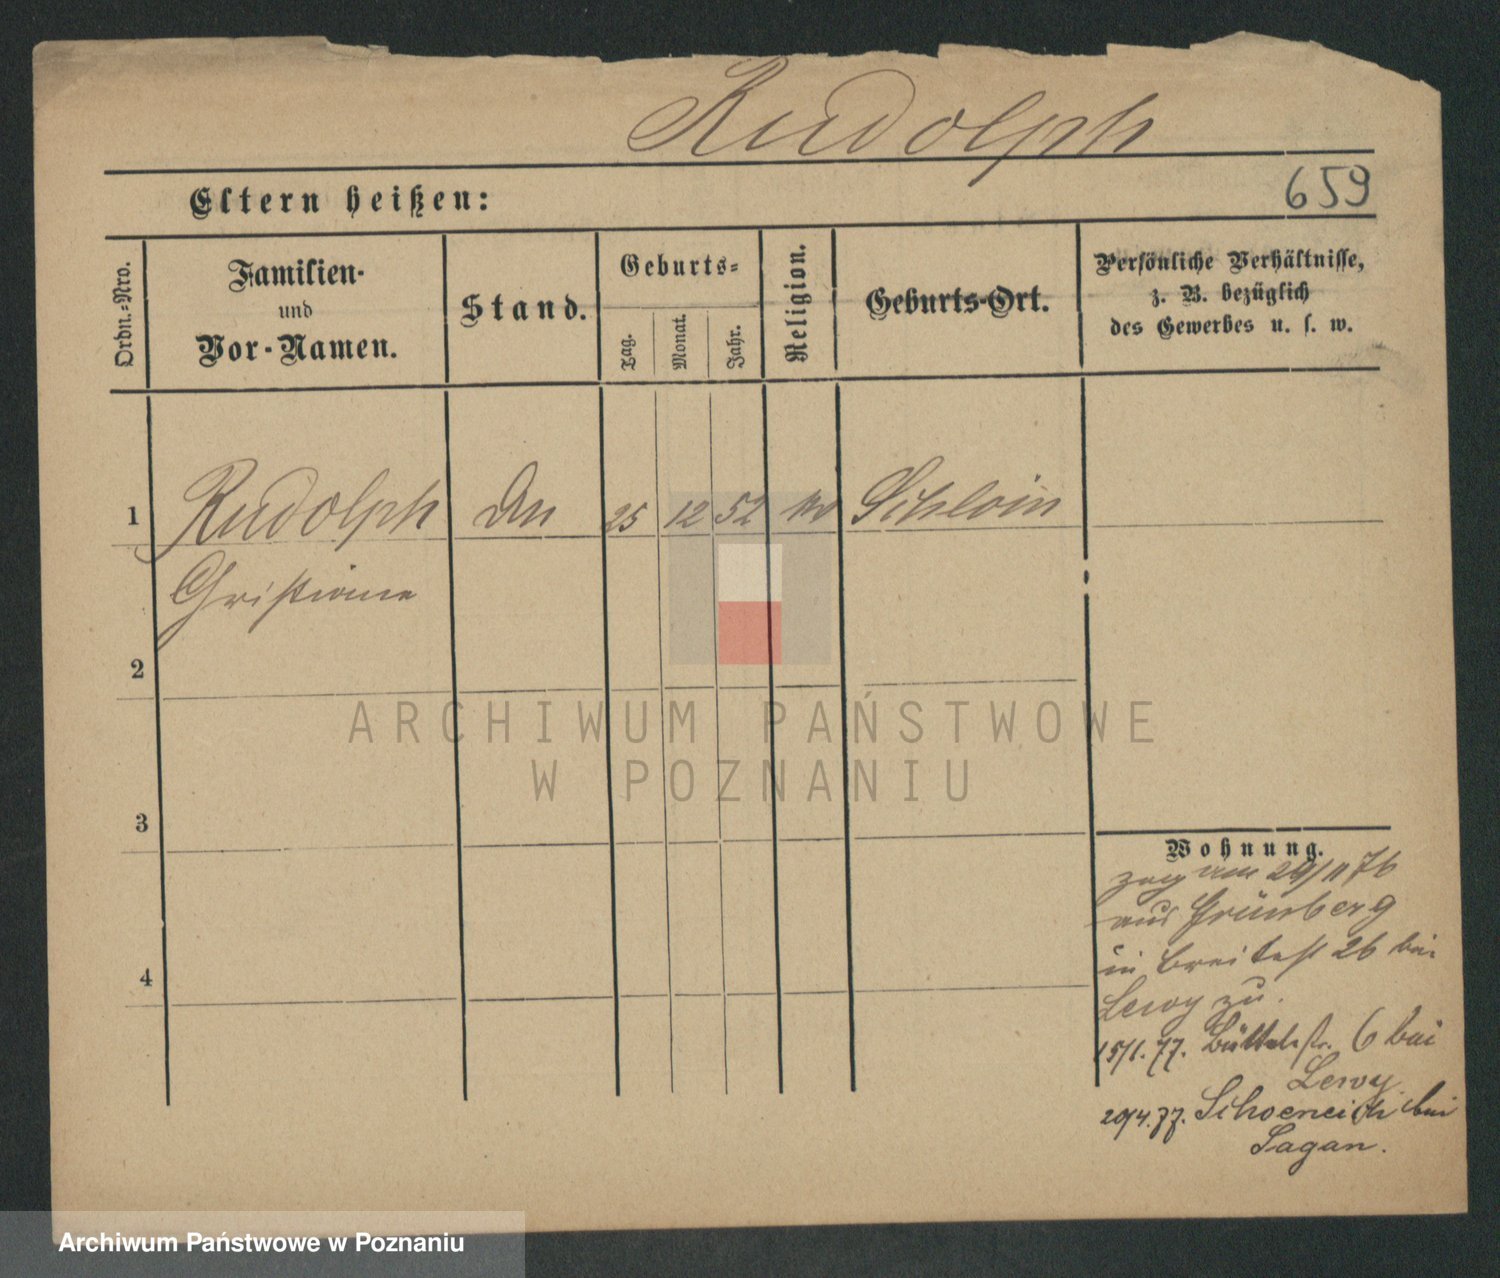 Rudolph
Eltern heißen:
659
Ordn.-Nro.
Familien-
und
Vor-Namen.
Stand.
Geburts-
Tag.
Monat.
Jahr.
Religion.
Geburts-Ort.
Persönliche Verhältnisse,
z. B. bezüglich
des Gewerbes u. s. w.
1 Rudolph 25 12 52 Schloin
Christiane
2
ARCHIWUM PAŃSTWOWE
W POZNANIU
3
Wohnung.
zog am 29/11 76
aus Grünberg
in Breitestr 26 bei
4
Lewy zu.
15/1. 77. Büttelstr. 6 bei
Lewy
20/4. 77. Schoeneich bei
Sagan.
Archiwum Państwowe w Poznaniu